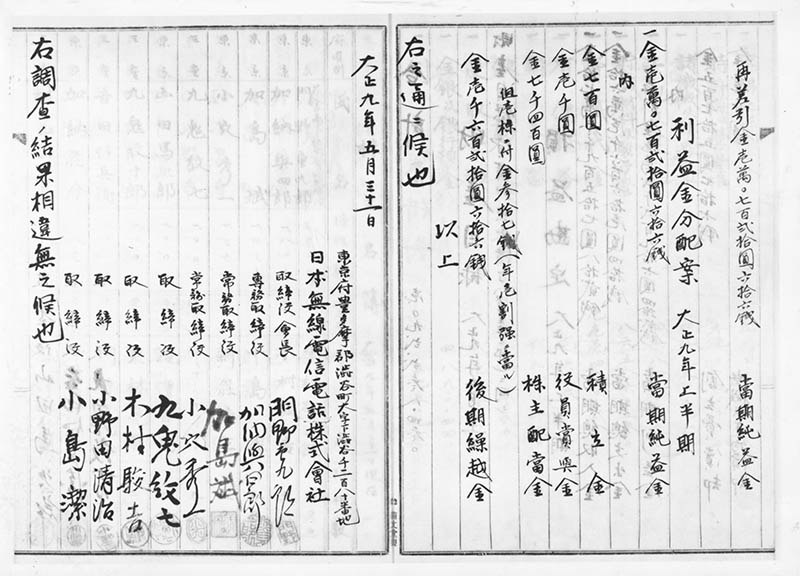 再差引金壱萬〇七百弐拾圓六拾六銭 當期純益金
利益金分配案 大正九年上半期
一金壱萬〇七百弐拾圓六拾六銭 當期純益金
内
金七百圓 積立金
金壱千圓 役員賞與金
金七千四百圓 株主配當金
但壱株ニ付金参拾七銭(年壱割強ニ當ル)
金壱千六百弐拾圓六拾六銭 後期繰越金
以上
右之通ニ候也
大正九年五月三十一日
東京府豊多摩郡渋谷町大字下渋谷千二百八十番地
日本無線電信電話株式會社
取締役会長
専務取締役 加地與四郎
常務取締役 加島斌
常務取締役
取締役 九鬼紋七
取締役 木村駿吉
取締役 小野田清治
取締役 小島潔
右調査ノ結果相違無之候也